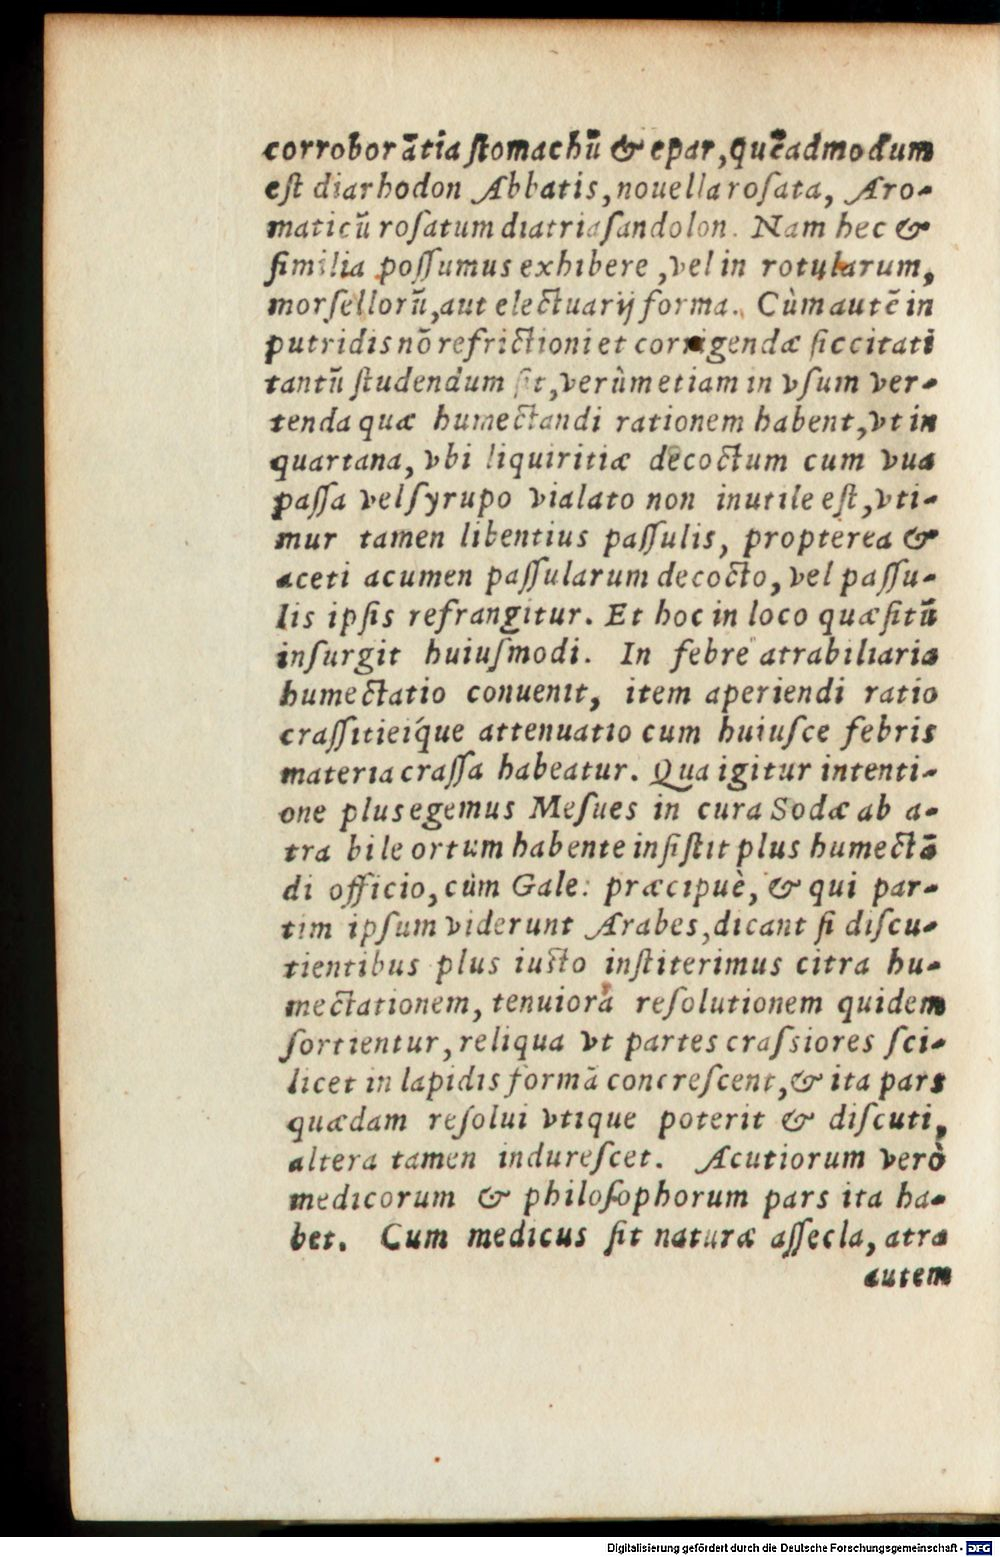 corroborātia ſtomachū & epar, quēadmodum
eſt diarhodon Abbatis, nouella roſata, Aro-
maticū roſatum diatriaſandolon. Nam hec &
ſimilia poſſumus exhibere, vel in rotularum,
morſellorū, aut electuarij forma. Cùm autē in
putridis nō refrictioni et corrigendæ ſiccitati
tantū ſtudendum ſit, verùm etiam in vſum ver-
tenda quæ humectandi rationem habent, vt in
quartana, vbi liquiritiæ decoctum cum vua
paſſa vel ſyrupo vialato non inutile eſt, vti-
mur tamen libentius paſſulis, propterea &
aceti acumen paſſularum decocto, vel paſſu-
lis ipſis refrangitur. Et hoc in loco quæſitū
inſurgit huiuſmodi. In febre atrabiliaria
humectatio conuenit, item aperiendi ratio
craſſitieiq́ue attenuatio cum huiuſce febris
materia craſſa habeatur. Qua igitur intenti-
one plus egemus Meſues in cura Sodæ ab a-
tra bile ortum habente inſiſtit plus humectā
di officio, cùm Gale: præcipuè, & qui par-
tim ipſum viderunt Arabes, dicant ſi diſcu-
tientibus plus iuſto inſtiterimus citra hu-
mectationem, tenuiora reſolutionem quidem
ſortientur, reliqua vt partes craſsiores ſci-
licet in lapidis formā concreſcent, & ita pars
quædam reſolui vtique poterit & diſcuti,
altera tamen indureſcet. Acutiorum verò
medicorum & philoſophorum pars ita ha-
bet. Cum medicus ſit naturæ aſſecla, atra
autem
Digitalisierung gefördert durch die Deutsche Forschungsgemeinschaft - DFG